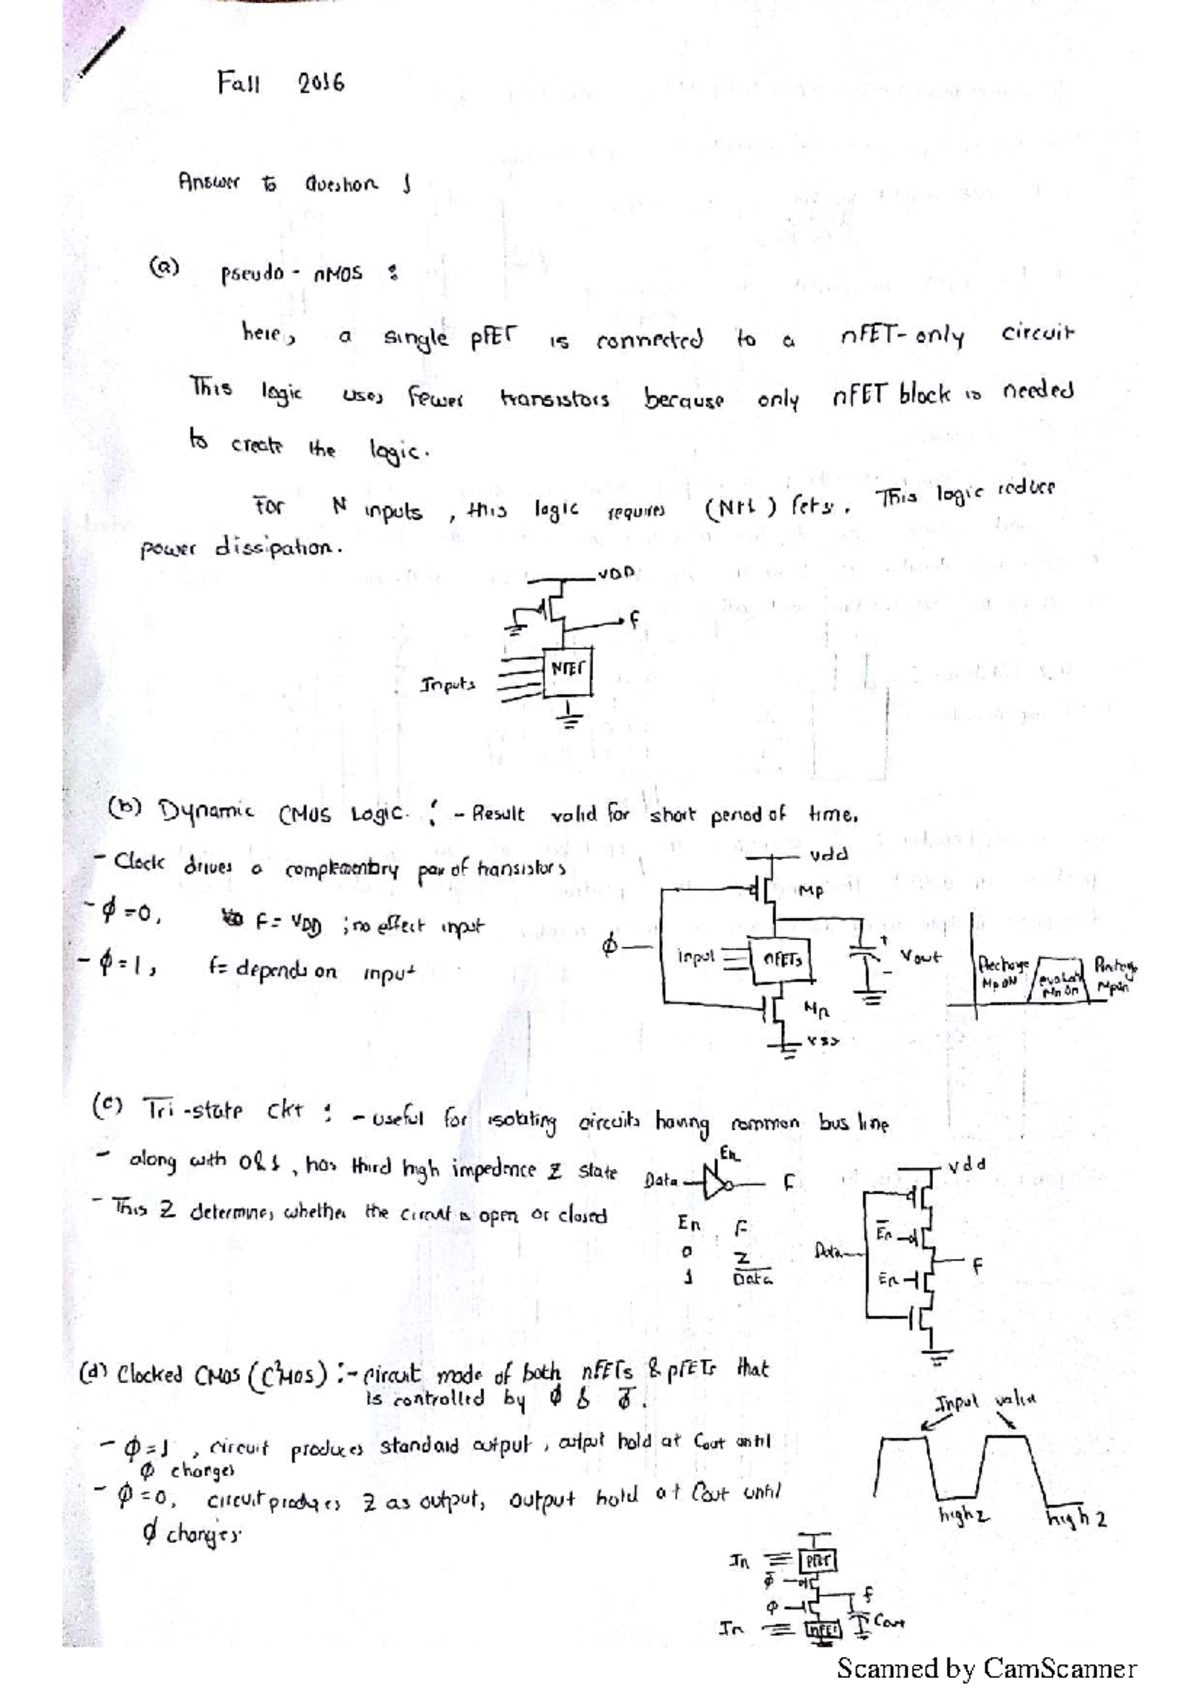 Fall 2016
Answer to Question 1
(a) pseudo - nMOS :
here, a single pFET is connected to a nFET-only circuit
This logic uses fewer transistors because only nFET block is needed
to create the logic.
For N inputs, this logic requires (N+1) fets. This logic reduce
power dissipation.
VDD
f
NFET
Inputs
(b) Dynamic CMOS Logic. : - Result valid for short period of time.
- Clock drives a complementry pair of transistors
- ϕ=0, F = VDD ; no effect input
- ϕ=1, f= depends on input
vdd
Mp
ϕ
input
nFETs
+
Vout
-
Mn
vss
Mp ON
Mn On
(c) Tri-state ckt : - useful for isolating circuits having common bus line
- along with 0&1, has third high impedence Z state
- This Z determines whether the circuit is open or closed
En
Data
F
En F
0 Z
1 D̅a̅t̅a̅
vdd
Data
E̅n̅
En
F
(d) Clocked CMOS (C²MOS) :- circuit made of both nFETs & pFETs that
is controlled by ϕ & ϕ̅.
- ϕ=1, circuit produces standard output, output hold at Cout until
ϕ changes
- ϕ=0, circuit produces Z as output, output hold at Cout until
ϕ changes
Input valid
high Z
high Z
In
pFET
ϕ̅
ϕ
f
Cout
In
nFET
Scanned by CamScanner